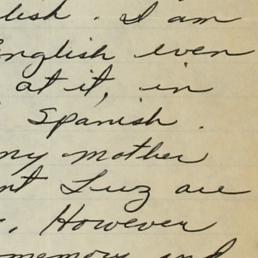 lish. I am
nglish even
at it, in
Spanish.
my mother
nt Luz are
. However
memory and